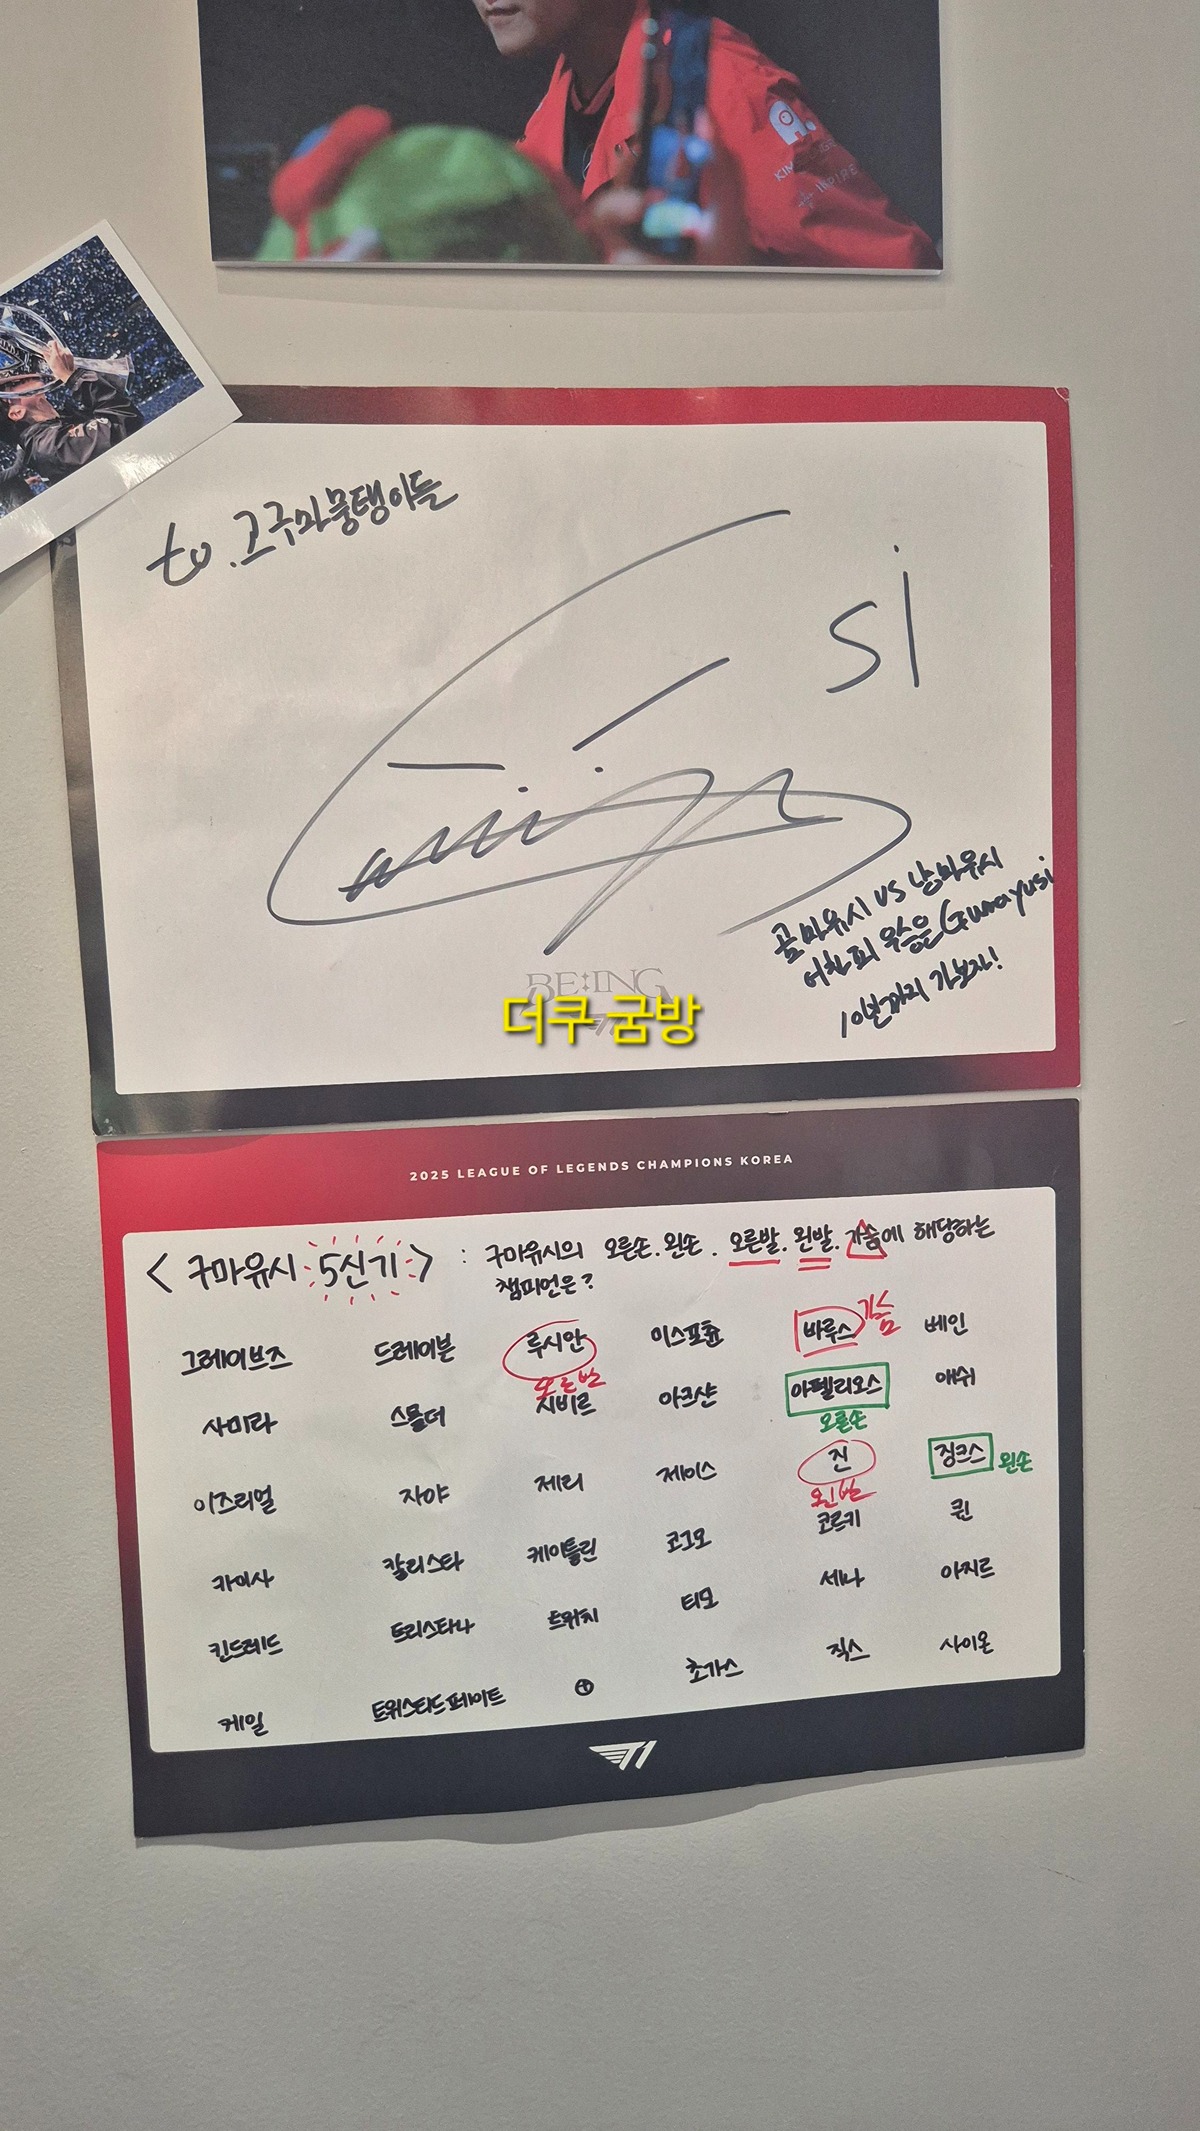 to. 고구마뭉탱이들
si
곰마유시 vs 냥마유시
어차피 우승은 Gumayusi
10번까지 가보자!
BE:ING
더쿠 굼방
2025 LEAGUE OF LEGENDS CHAMPIONS KOREA
<구마유시 5신기> : 구마유시의 오른손. 왼손. 오른발. 왼발. 가슴에 해당하는
챔피언은?
그레이브즈 드레이븐 루시안 이스포츈 바루스 가슴 베인
오른발
사미라 스몰더 시비르 아크샨 아펠리오스 애쉬
오른손
이즈리얼 자야 제리 제이스 진 징크스 왼손
왼발
카이사 칼리스타 케이틀린 코그모 코르키 퀸
킨드레드 트리스타나 트위치 티모 세나 아지르
케일 트위스티드페이트 초가스 직스 사이온
T1